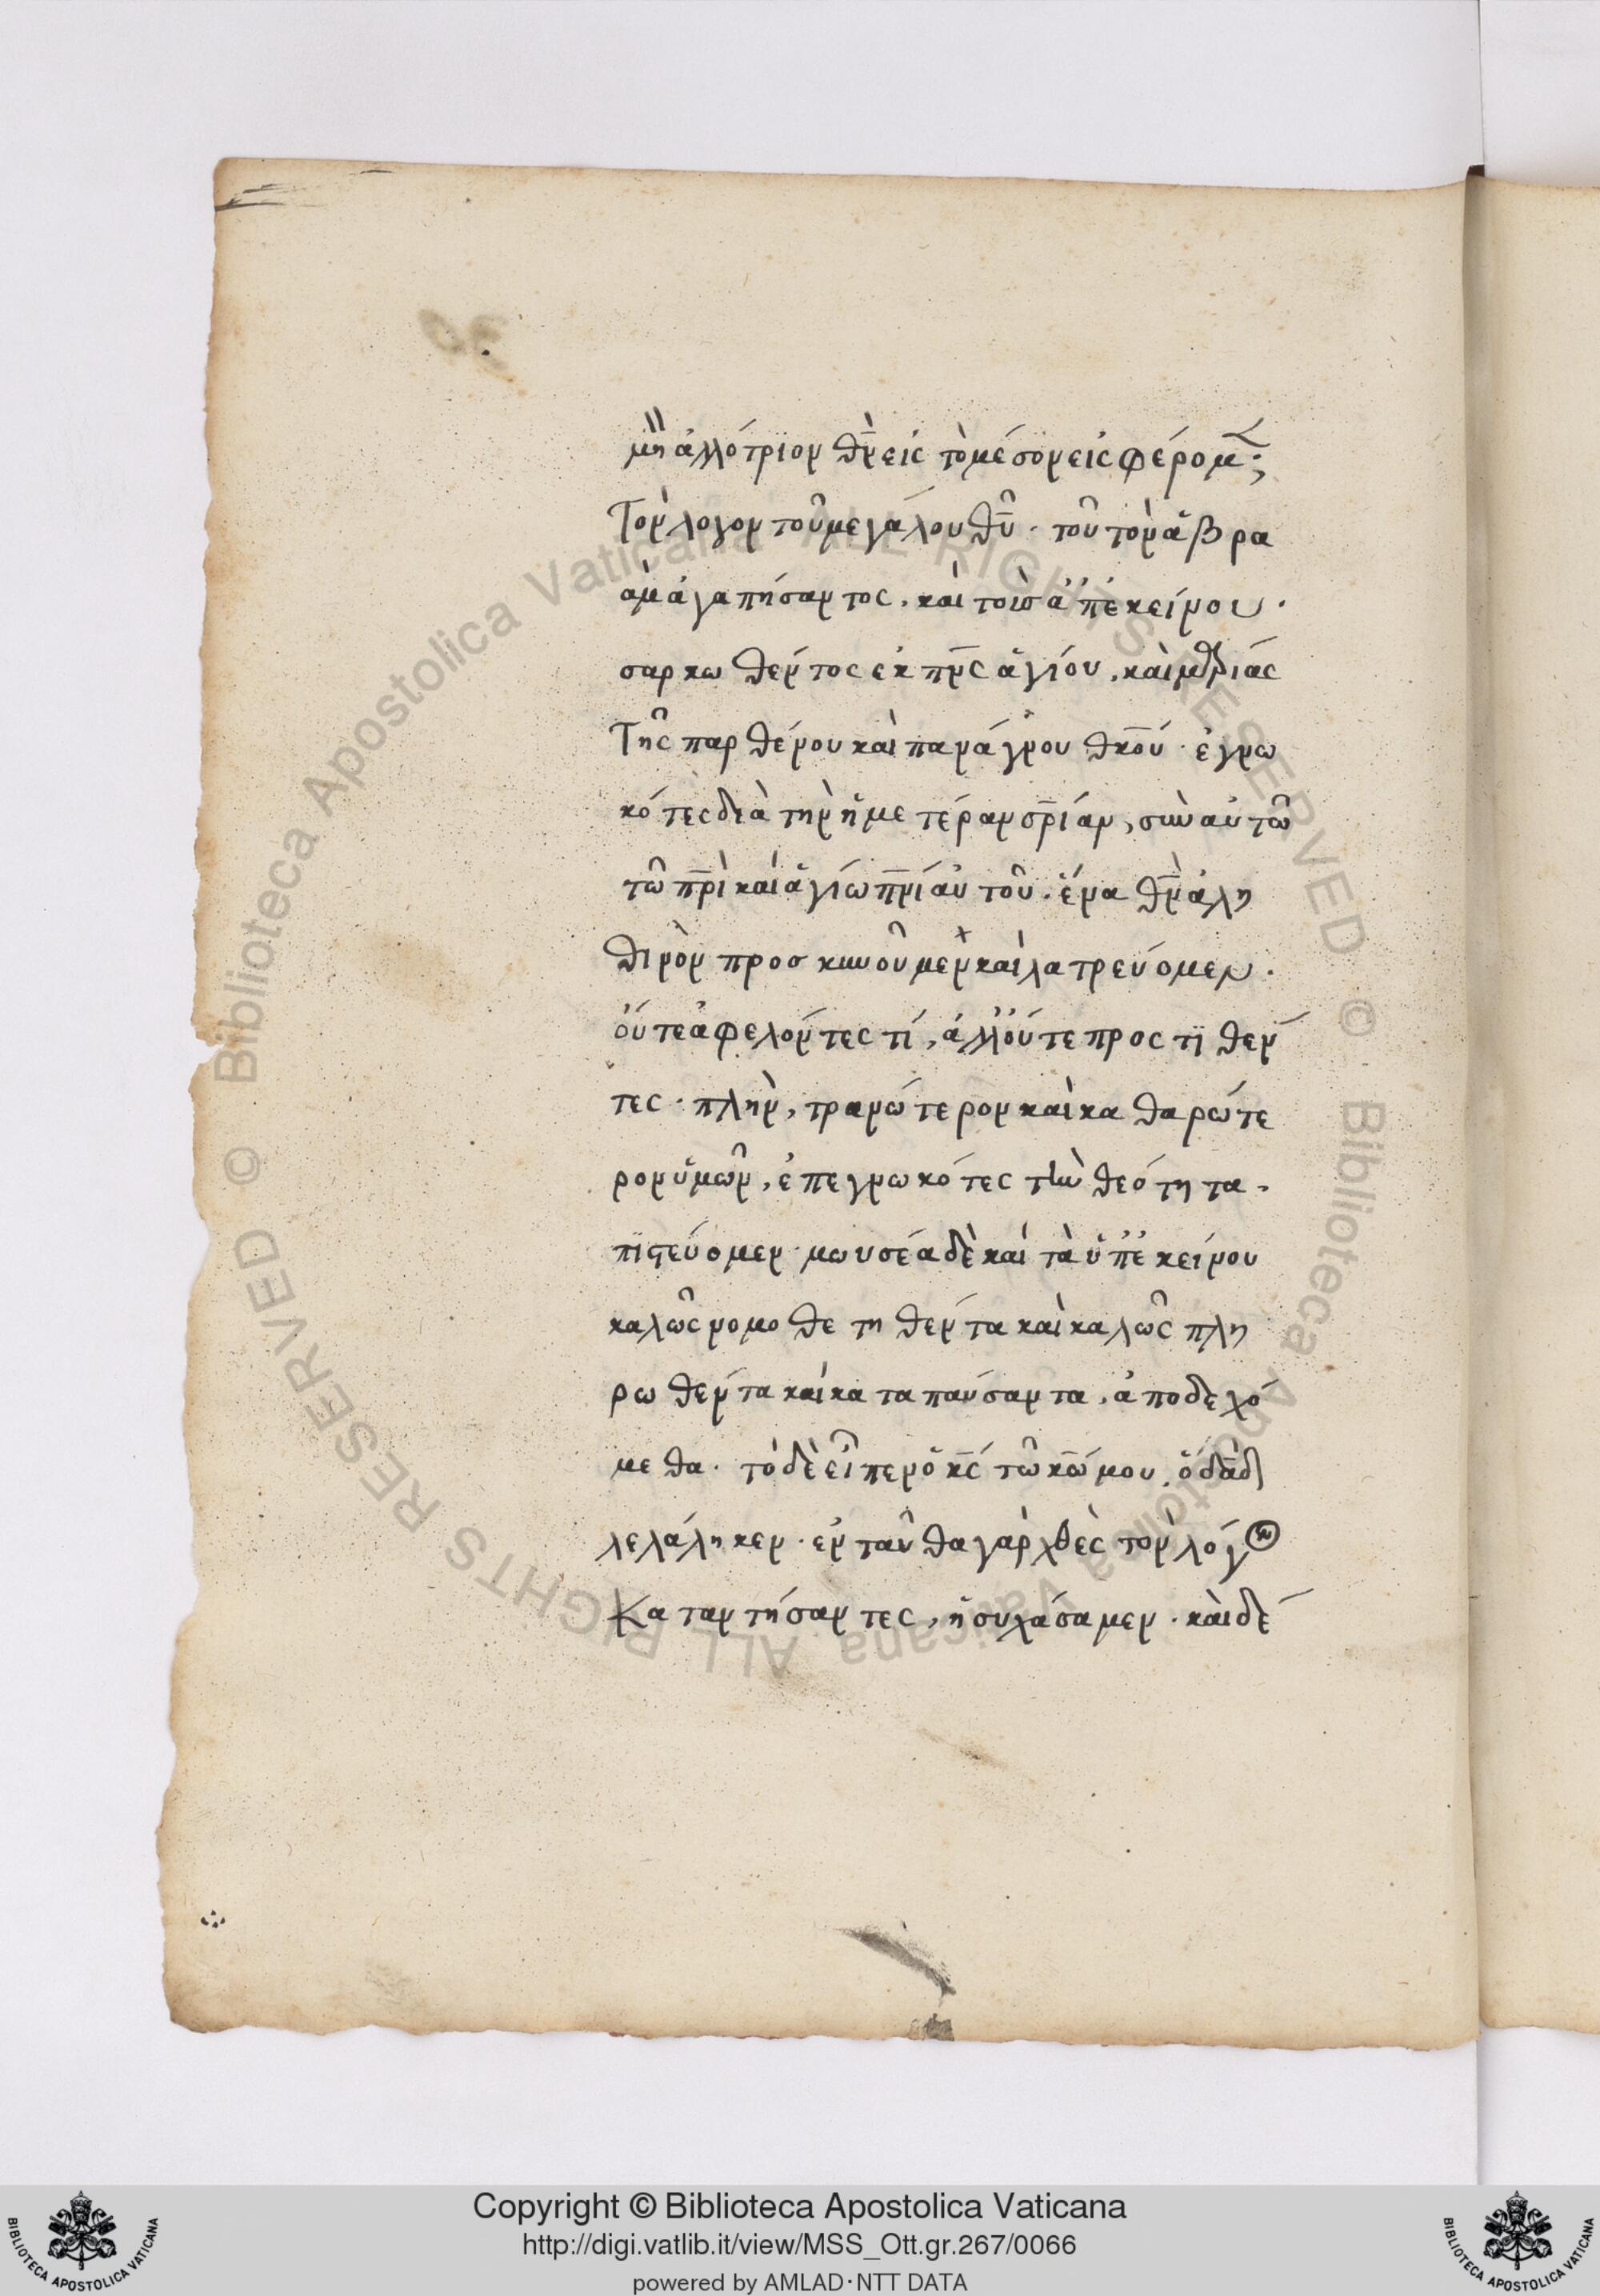 μὴ ἀλλότριον θ̅ν̅ εἰς τὸ μέσον εἰσφέρομ;
Τὸν λόγον τοῦ μεγάλου θ̅υ̅· τοῦ τὸν ἄβρα
αμ ἀγαπήσαντος, καὶ τοῖσ ἀπ' ἐκείνου·
σαρκωθέντος εκ π̅ν̅ς ἁγίου, καὶ μαρίας
Τῆς παρθένου καὶ πανάγνου θ̅κου· ἐγνω
κότες διὰ τὴν ἡμετέραν σ̅ρίαν, σὺν αὐτῶ
τῶ π̅ρὶ καὶ ἁγίω π̅νί αὐτοῦ. ἕνα θ̅ν̅ ἀλη
θινὸν προσκυνοῦμεν καὶ λατρεύομεν.
οὔτε ἀφελόντες τί, ἀλλ' οὔτε προς τϊ θέν
τες· πλὴν, τρανώτερον καὶ καθαρώτε
ρον ὑμῶν, ἐπεγνωκότες τὴν θεότητα,
πϊστεύομεν· μωυσέα δὲ καὶ τὰ ὑπ' ἐκείνου
καλῶς νομοθετηθέντα καὶ καλῶς πλη
ρωθέντα καὶ καταπαύσαντα, ἀποδεχό
μεθα. τὸ δὲ εἶπεν ὁ κ̅ς τῶ κ̅ω μου, ὁ δ̅α̅δ
λελάληκεν· ενταῦθα γὰρ χθὲς τὸν λόγ
Καταντήσαντες, ἡσυχάσαμεν· καὶ δέ
Copyright © Biblioteca Apostolica Vaticana
http://digi.vatlib.it/view/MSS_Ott.gr.267/0066
powered by AMLAD·NTT DATA
BIBLIOTECA APOSTOLICA VATICANA
BIBLIOTECA APOSTOLICA VATICANA
© Biblioteca Apostolica Vaticana ALL RIGHTS RESERVED © Biblioteca Apostolica Vaticana ALL RIGHTS RESERVED